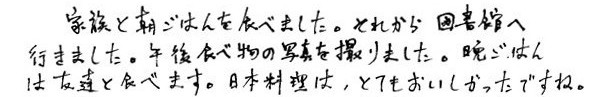 家族と朝ごはんを食べました。それから 図書館へ
行きました。午後食べ物の写真を撮りました。晩ごはん
は友達と食べます。日本料理は、とてもおいしかったですね。